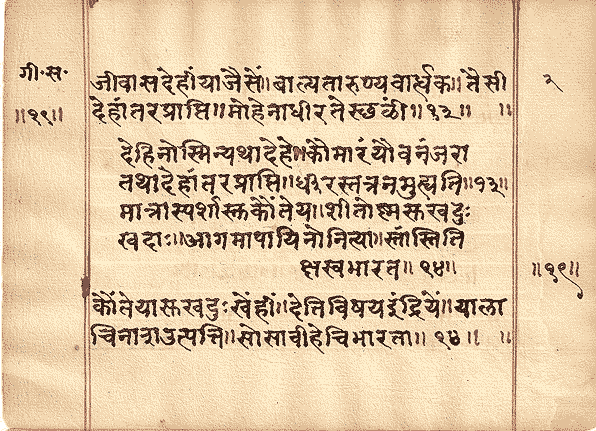 गी॰ स॰
जीवासदेहींयाजैसें॥बाल्यतारुण्यवार्धक॥तैसी
२
॥१९॥
देहांतरप्राप्ति॥मोहेनाधीरतेस्थळीं॥१३॥ ॥
देहिनोस्मिन्यथादेहे॥कौमारंयौवनंजरा
तथादेहांतरप्राप्ति॥धीरस्तत्रनमुह्यति॥१३॥
मात्रास्पर्शास्तकौंतेय॥शीतोष्मस्तखदुः
खदाः॥आगमापायिनोनित्या॥स्तांस्तिति
क्षस्वभारत॥१४॥
॥१९॥
कौंतेयास्तखदुःखेंहीं॥देतिविषयइंद्रियें॥याला
चिनाशउत्पत्ति॥सोसावीहेचिभारता॥१४॥ ॥